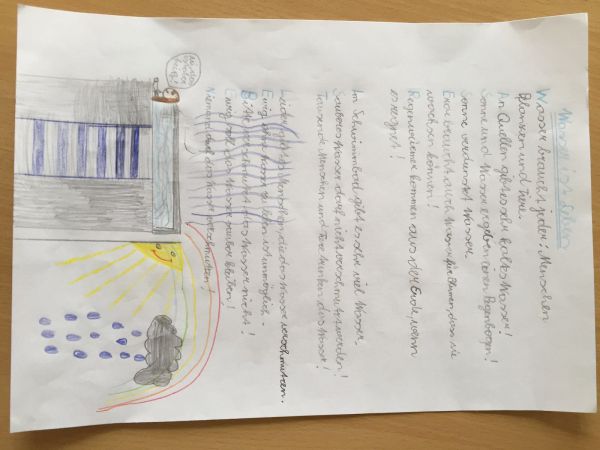 Wasser ist Leben
Wasser braucht jeder: Menschen
Pflanzen und Tiere.
An Quellen gibt es sehr kaltes Wasser!
Sonne und Wasser ergeben einen Regenbogen!
Sonne verdunstet Wasser.
Erde braucht auch Wasser für Blumen, dass sie
wachsen können!
Regenwürmer kommen aus der Erde, wenn
es regnet!
Im Schwimmbad gibt es sehr viel Wasser.
Sauberes Wasser darf nicht verschmutzt werden!
Tausende Menschen und Tiere trinken das Wasser!
Leider gibt es Menschen, die das Wasser verschmutzen.
Ewig ohne Wasser zu leben ist unmöglich.
Bitte verschmutzt das Wasser nicht!
Ewig soll das Wasser sauber bleiben!
Niemand darf das Wasser verschmutzen!